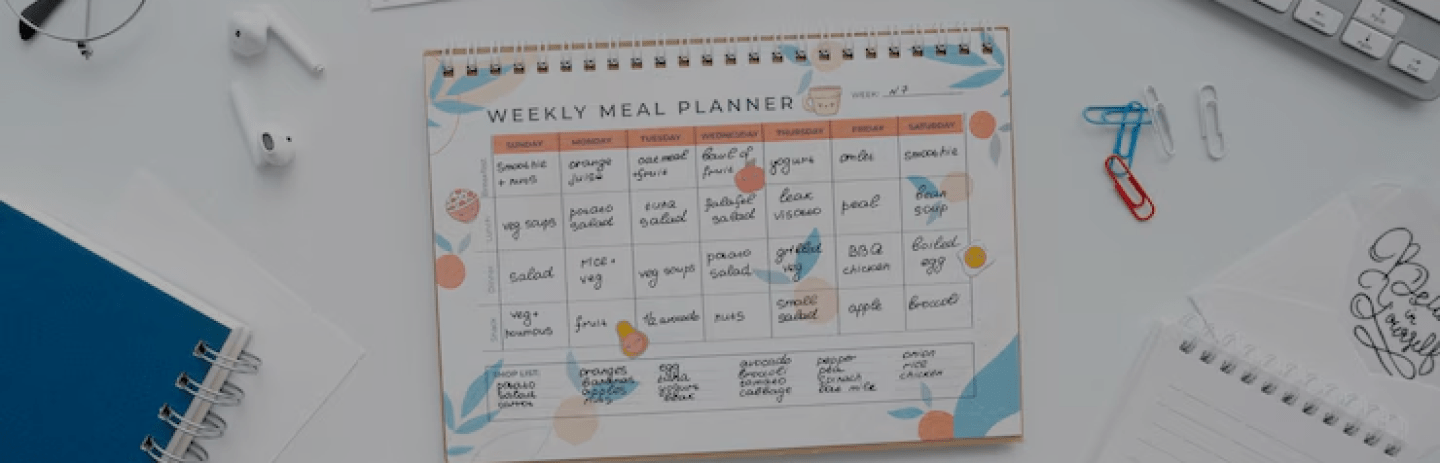 WEEKLY MEAL PLANNER
WEEK: N7
SUNDAY MONDAY TUESDAY WEDNESDAY THURSDAY FRIDAY SATURDAY
Breakfast
smoothie + nuts
orange juise
oatmeal + fruit
bowl of fruit
yogurt
omlet
smoothie
Lunch
veg soups
potato salad
tuna salad
falafel salad
leak
peal
bean soup
Dinner
salad
rice + veg
veg soups
potato salad
grilled veg
BBQ chicken
boiled egg
Snack
veg + houmous
fruit
1/2 avocado
nuts
small salad
apple
broccoli
SHOP LIST:
potato
salad
carrot
oranges
bananas
apples
nuts
egg
tuna
yogurt
leak
avocado
broccoli
tomato
cabbage
pepper
pea
spinach
onion
rice
chicken
Believe
in
Yourself